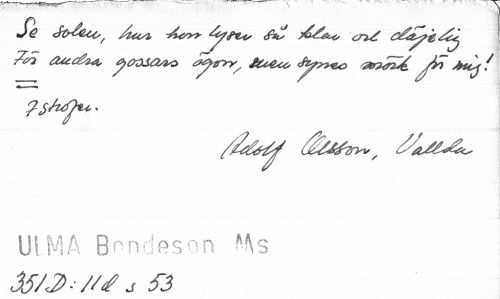 Se solen, hur hon lyser så klar och däjelig
För andra gossars ögon, men synes mörk för mig!
7 strofer.
Adolf Olsson, Vallda
ULMA Bondeson Ms
351 D: 11d s 53